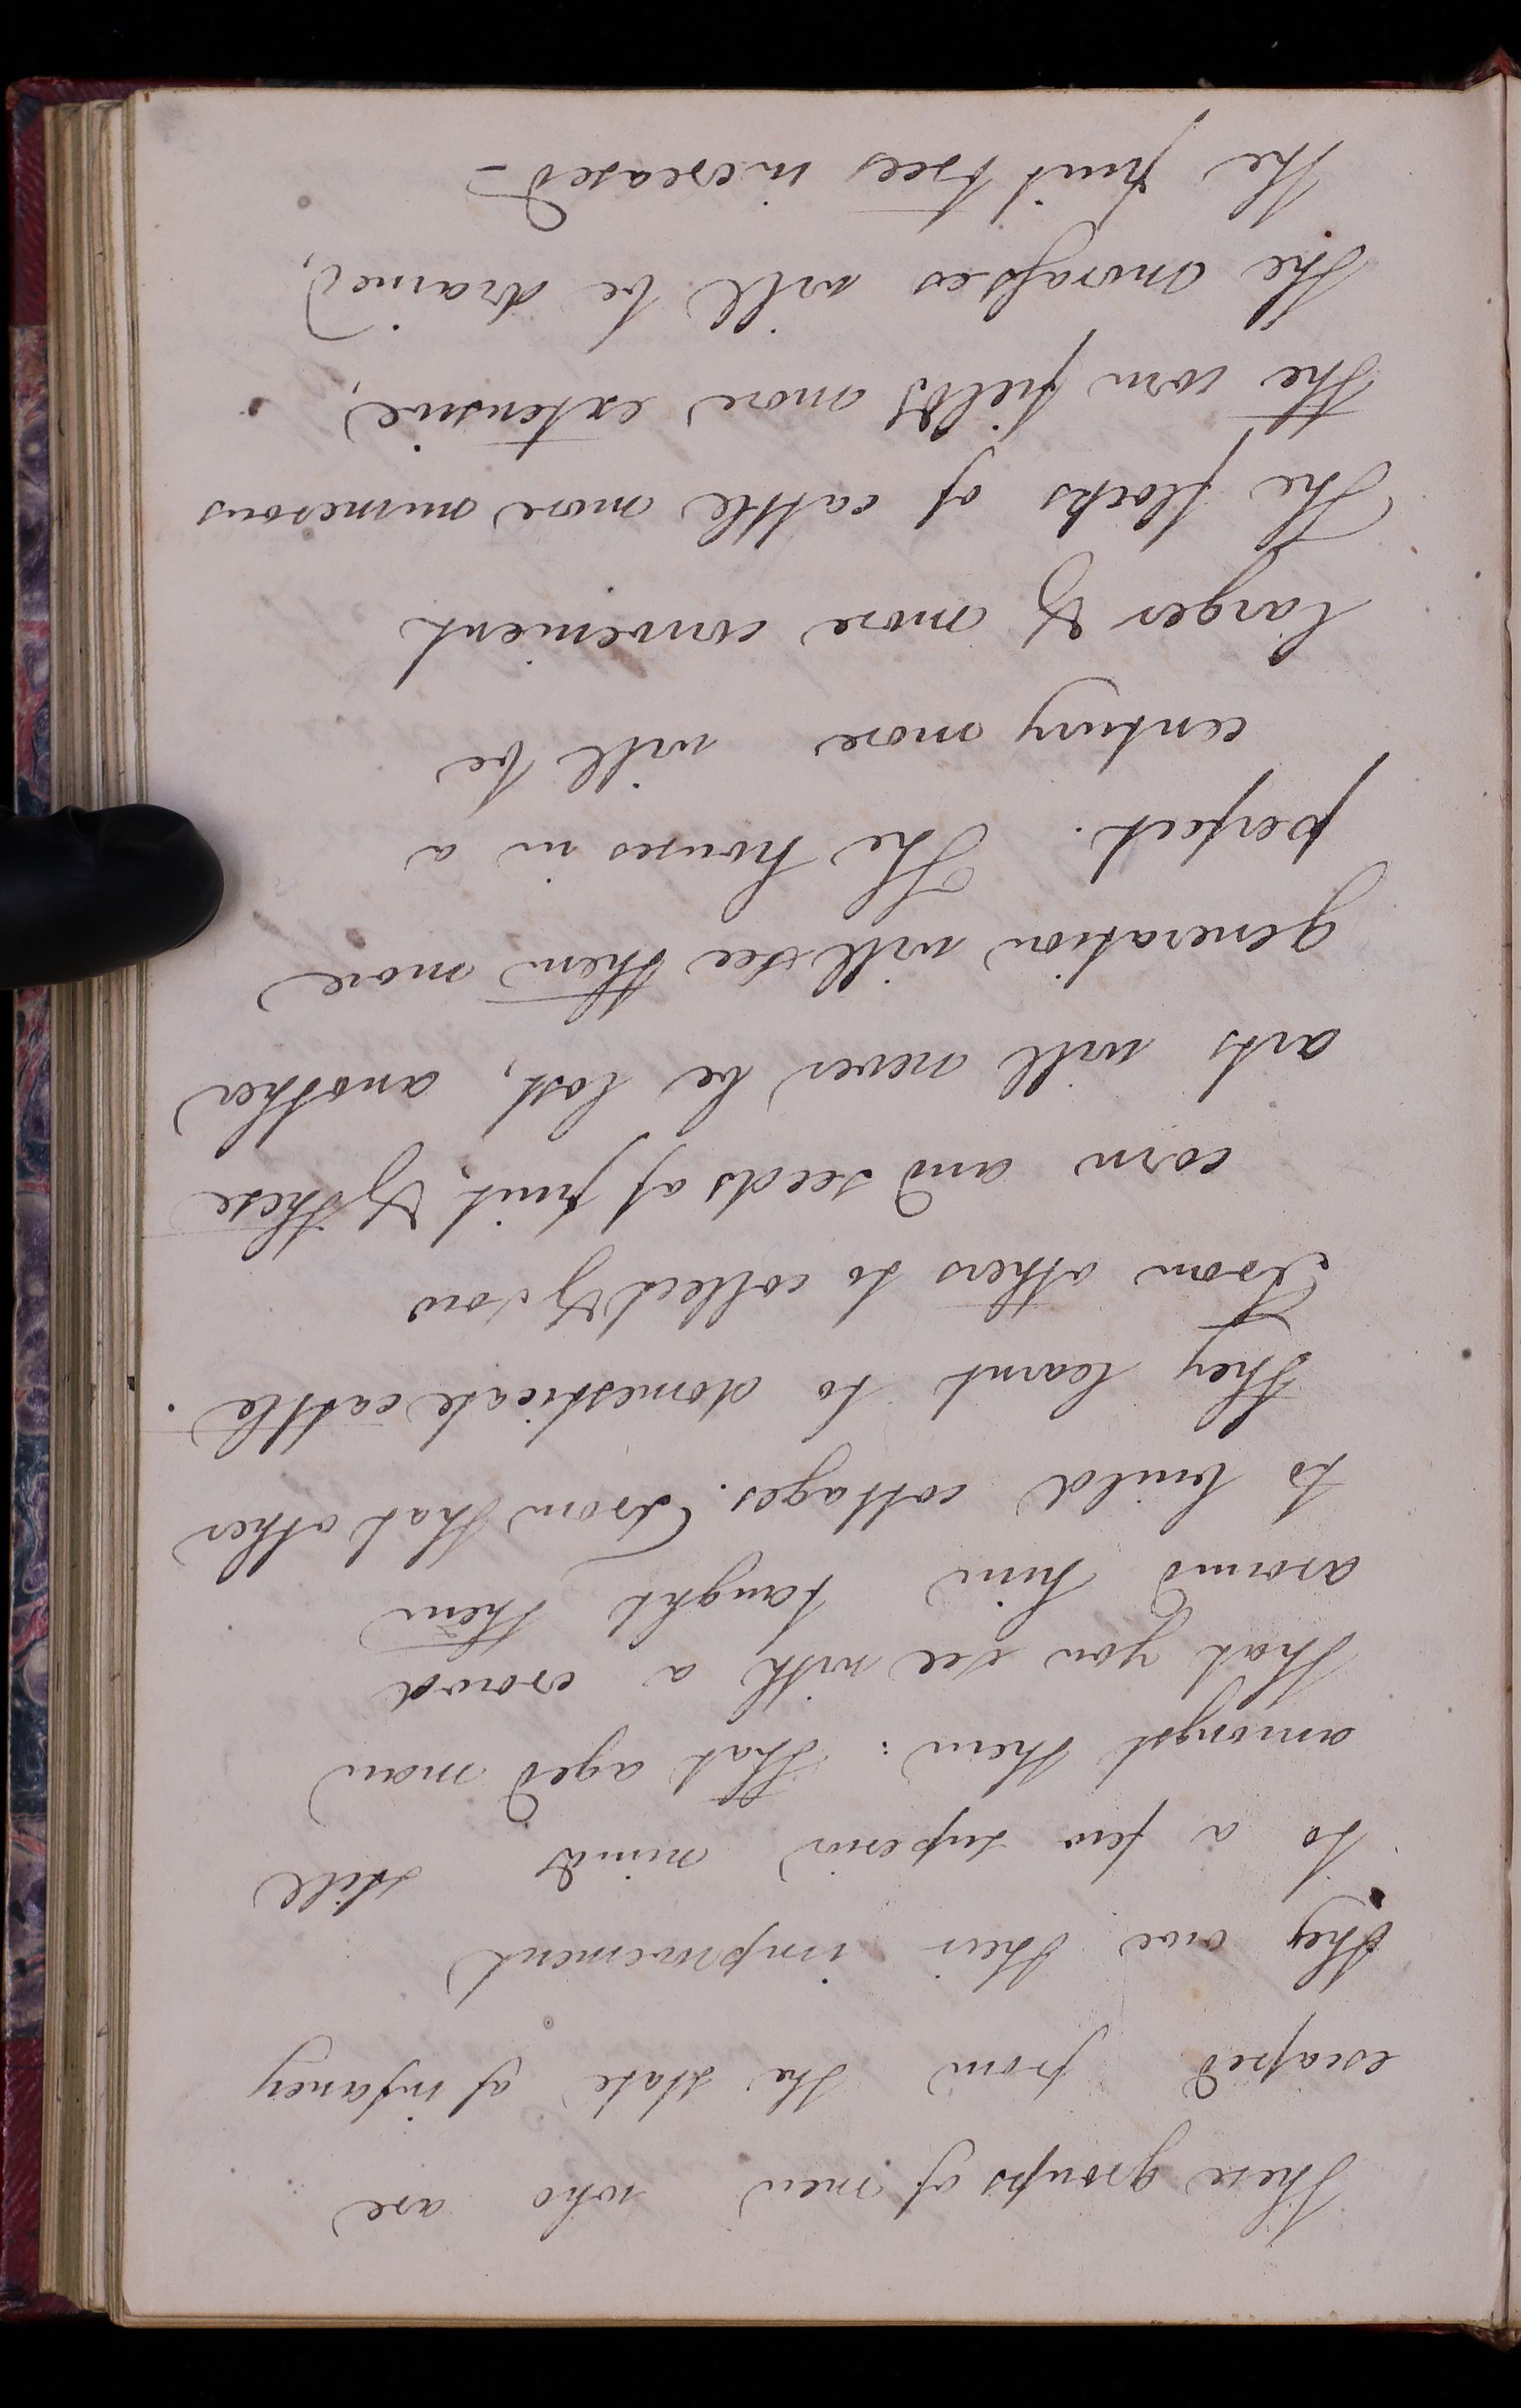 These groups of men who are
escaped from the state of infancy
they owe their improvement
to a few superior minds still
amongst them: That aged man
that you see with a crowd
around him taught them
to build cottages. From that other
They learnt to domesticate cattle.
From others to collect & sow
corn and seeds of fruit, & these
arts will never be lost, another
generation will see them more
perfect. The houses in a
century more will be
larger & more convenient
The flocks of cattle more numerous
The corn fields more extensive,
The morasses will be drained,
The fruit trees increased -